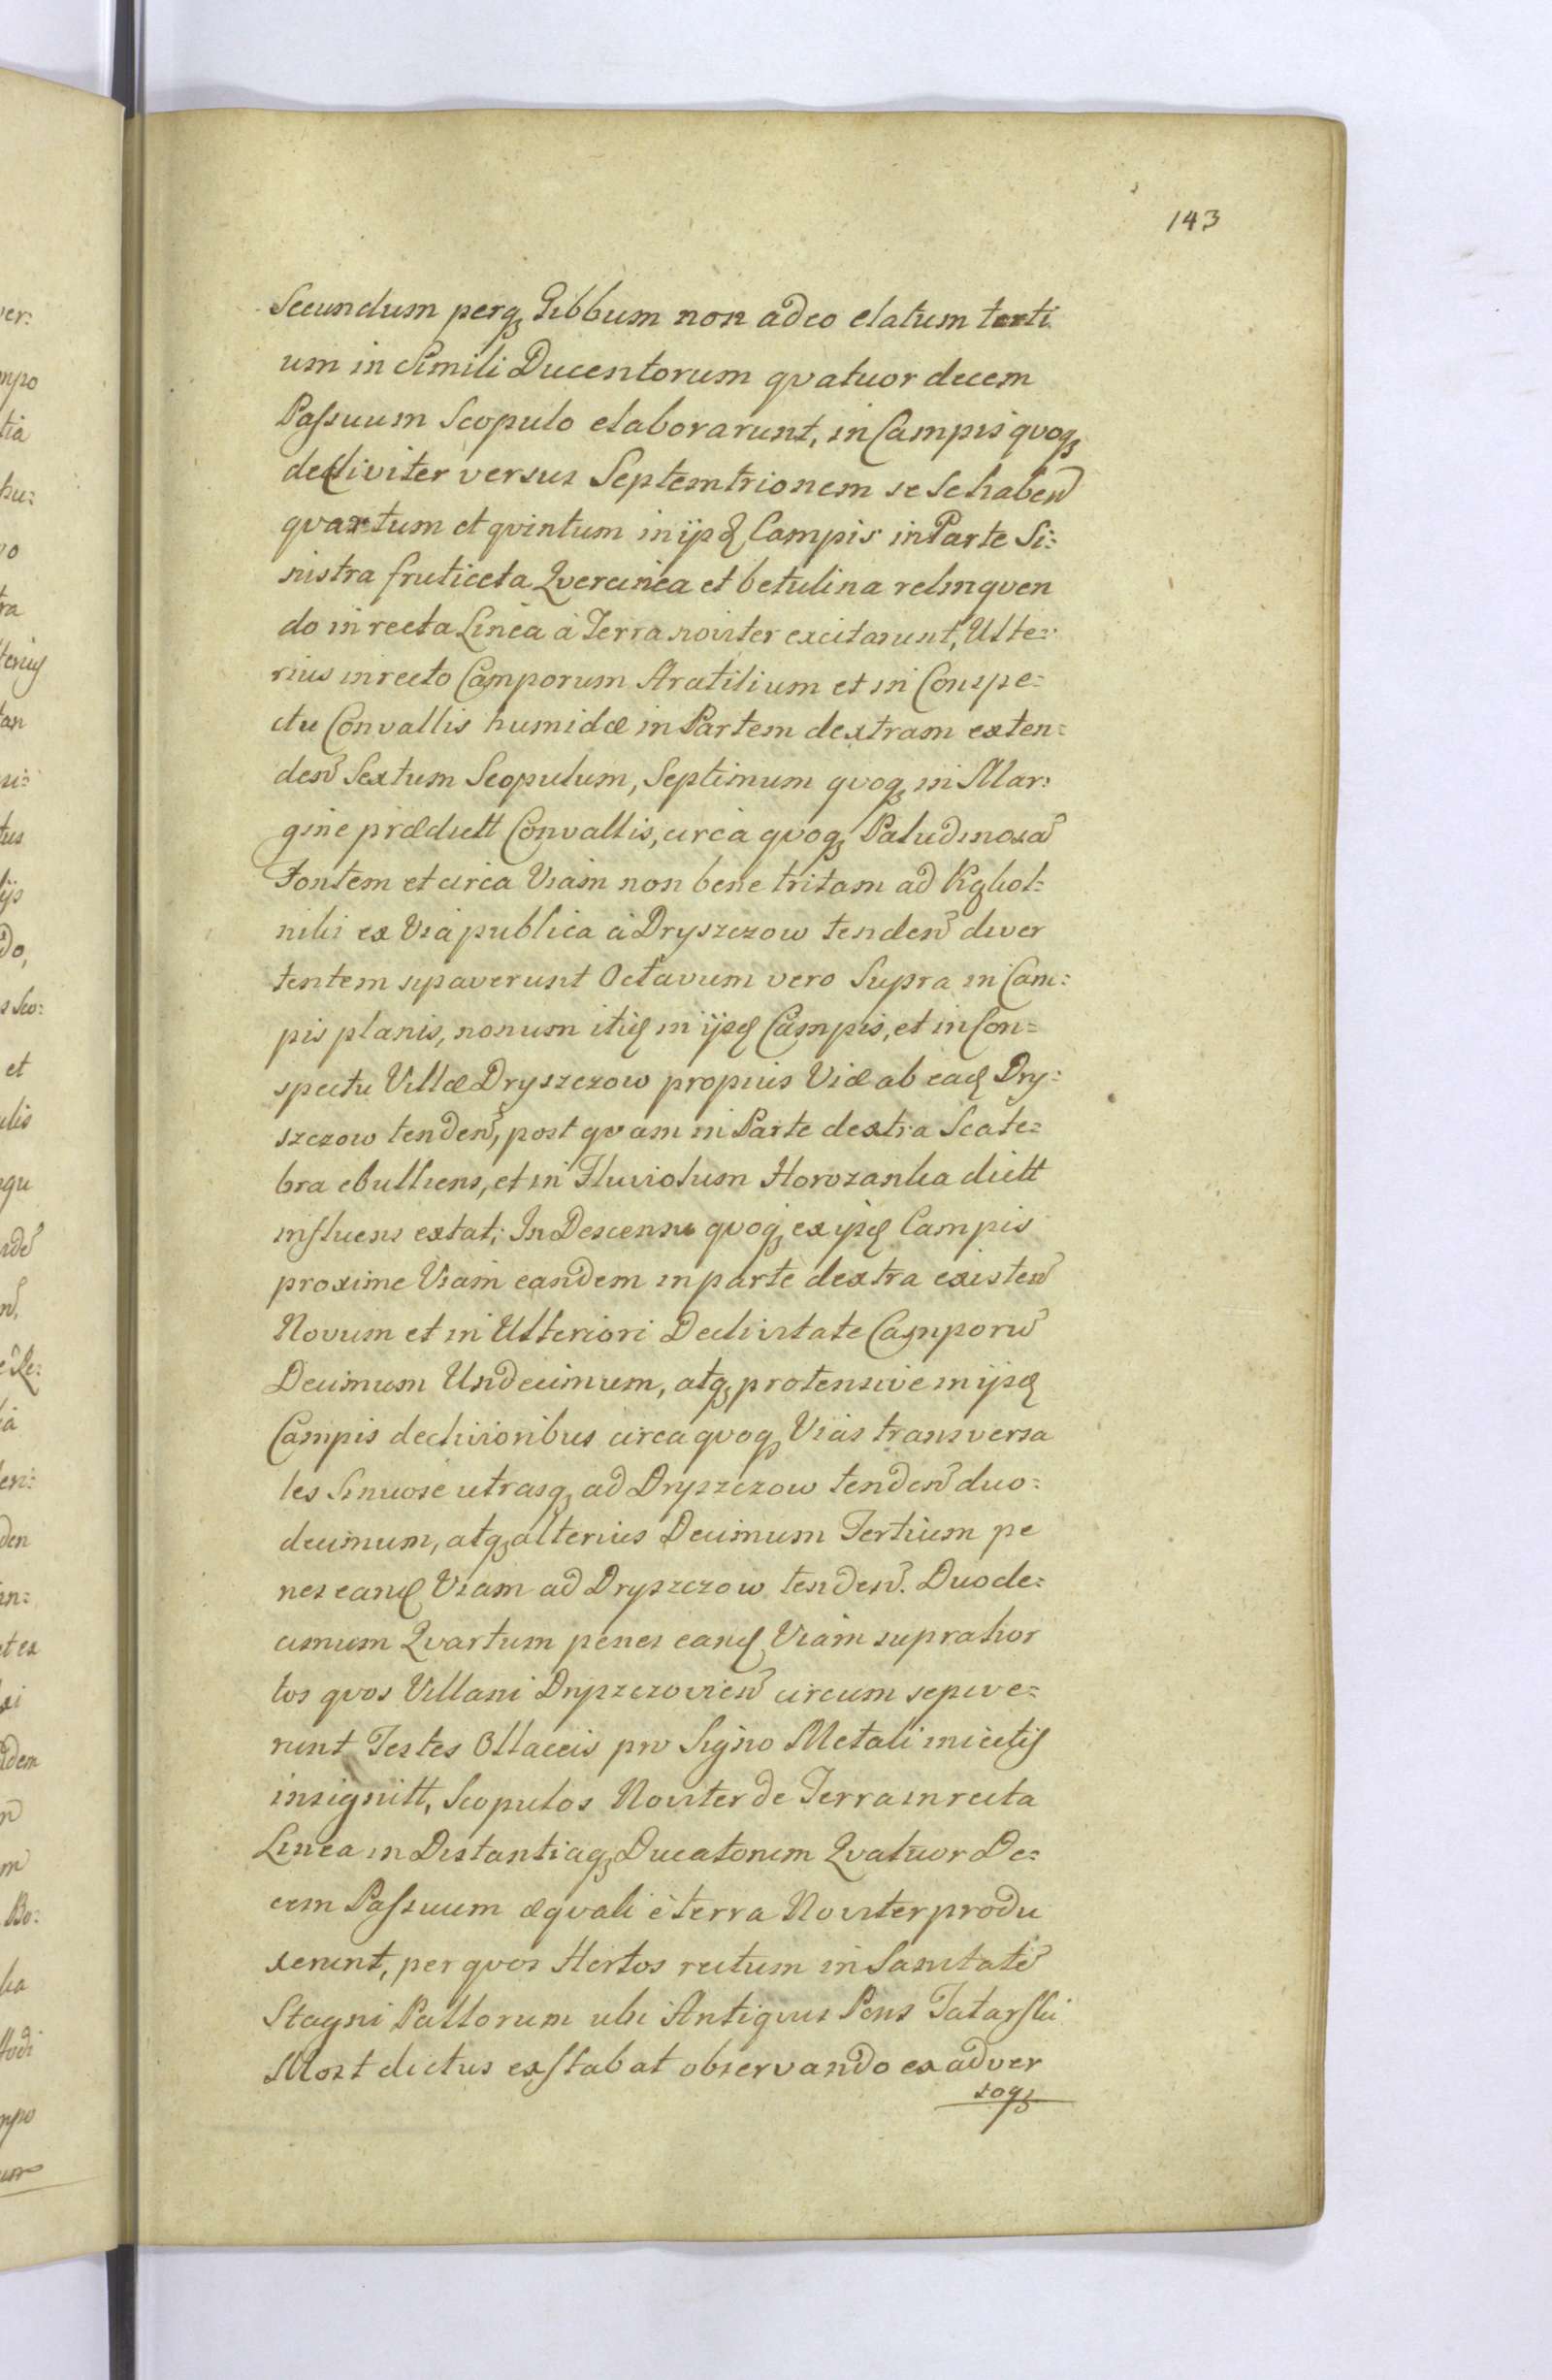 143
Secundum perq₃ Gibbum non adeo elatum terti
um in Simili Ducentorum qvatuor decem
Paſsuum Scopulo elaborarunt, in Campis qvoq₃
decliviter versus Septemtrionem se se haben̄
qvartum et qvintum in ijsd Campis in Parte Si=
nistra fruticeta Qvercinea et betulina relinqven
do in recta Linea à Terra noviter excitarunt, Ulte=
rius in recto Camporum Aratilium et in Conspe=
ctu Convallis humidæ in Partem dextram exten=
den̄ Sextum Scopulum, Septimum qvoq₃ in Mar=
gine prædictt Convallis, circa qvoq₃ Paludinosā
Fontem et circa Viam non bene tritam ad
niki ex Via publica à Dryszczow tenden̄ diver
tentem sipaverunt Octavum vero Supra in Cam=
pis planis, nonum itid in ijsd Campis, et in Con=
spectu Villæ Dryszczow propius Viæ ab ead Dry=
szczow tenden̄, post qvam in Parte dextra Scate=
bra ebulliens, et in Fluviolum Horozanka dictt
influens extat; In Descensu quoq₃ ex ijsd Campis
proxime Viam eandem in parte dextra existen̄
Novum et in Ulteriori Declivitate Camporū
Decimum Undecimum, atq₃ protensive in ijsd
Campis declivioribus circa qvoq₃ Vias transversa
les Sinuose utrasq₃ ad Dryszczow tenden̄ duo=
decimum, atq₃ alterius Decimum Tertium pe
nes eand Viam ad Dryszczow tenden̄. Duode=
cimum Qvartum penes eand Viam supra hor
tos qvos Villani Dryszczovien̄ circum sepive=
runt Testes Ollaceis pro Signo Metali iniectis
insignitt, Scopulos Noviter de Terra in recta
Linea in Distantiaq₃ Ducatorum Qvatuor De=
cem Paſsuum æqvali è terra Noviter produ
xerunt, per qvos Hortos rectum in Sanitatē
Stagni Pallorum ubi Antiqvus Pons Tatarski
Most dictus exstabat observando ex adver
soq₃